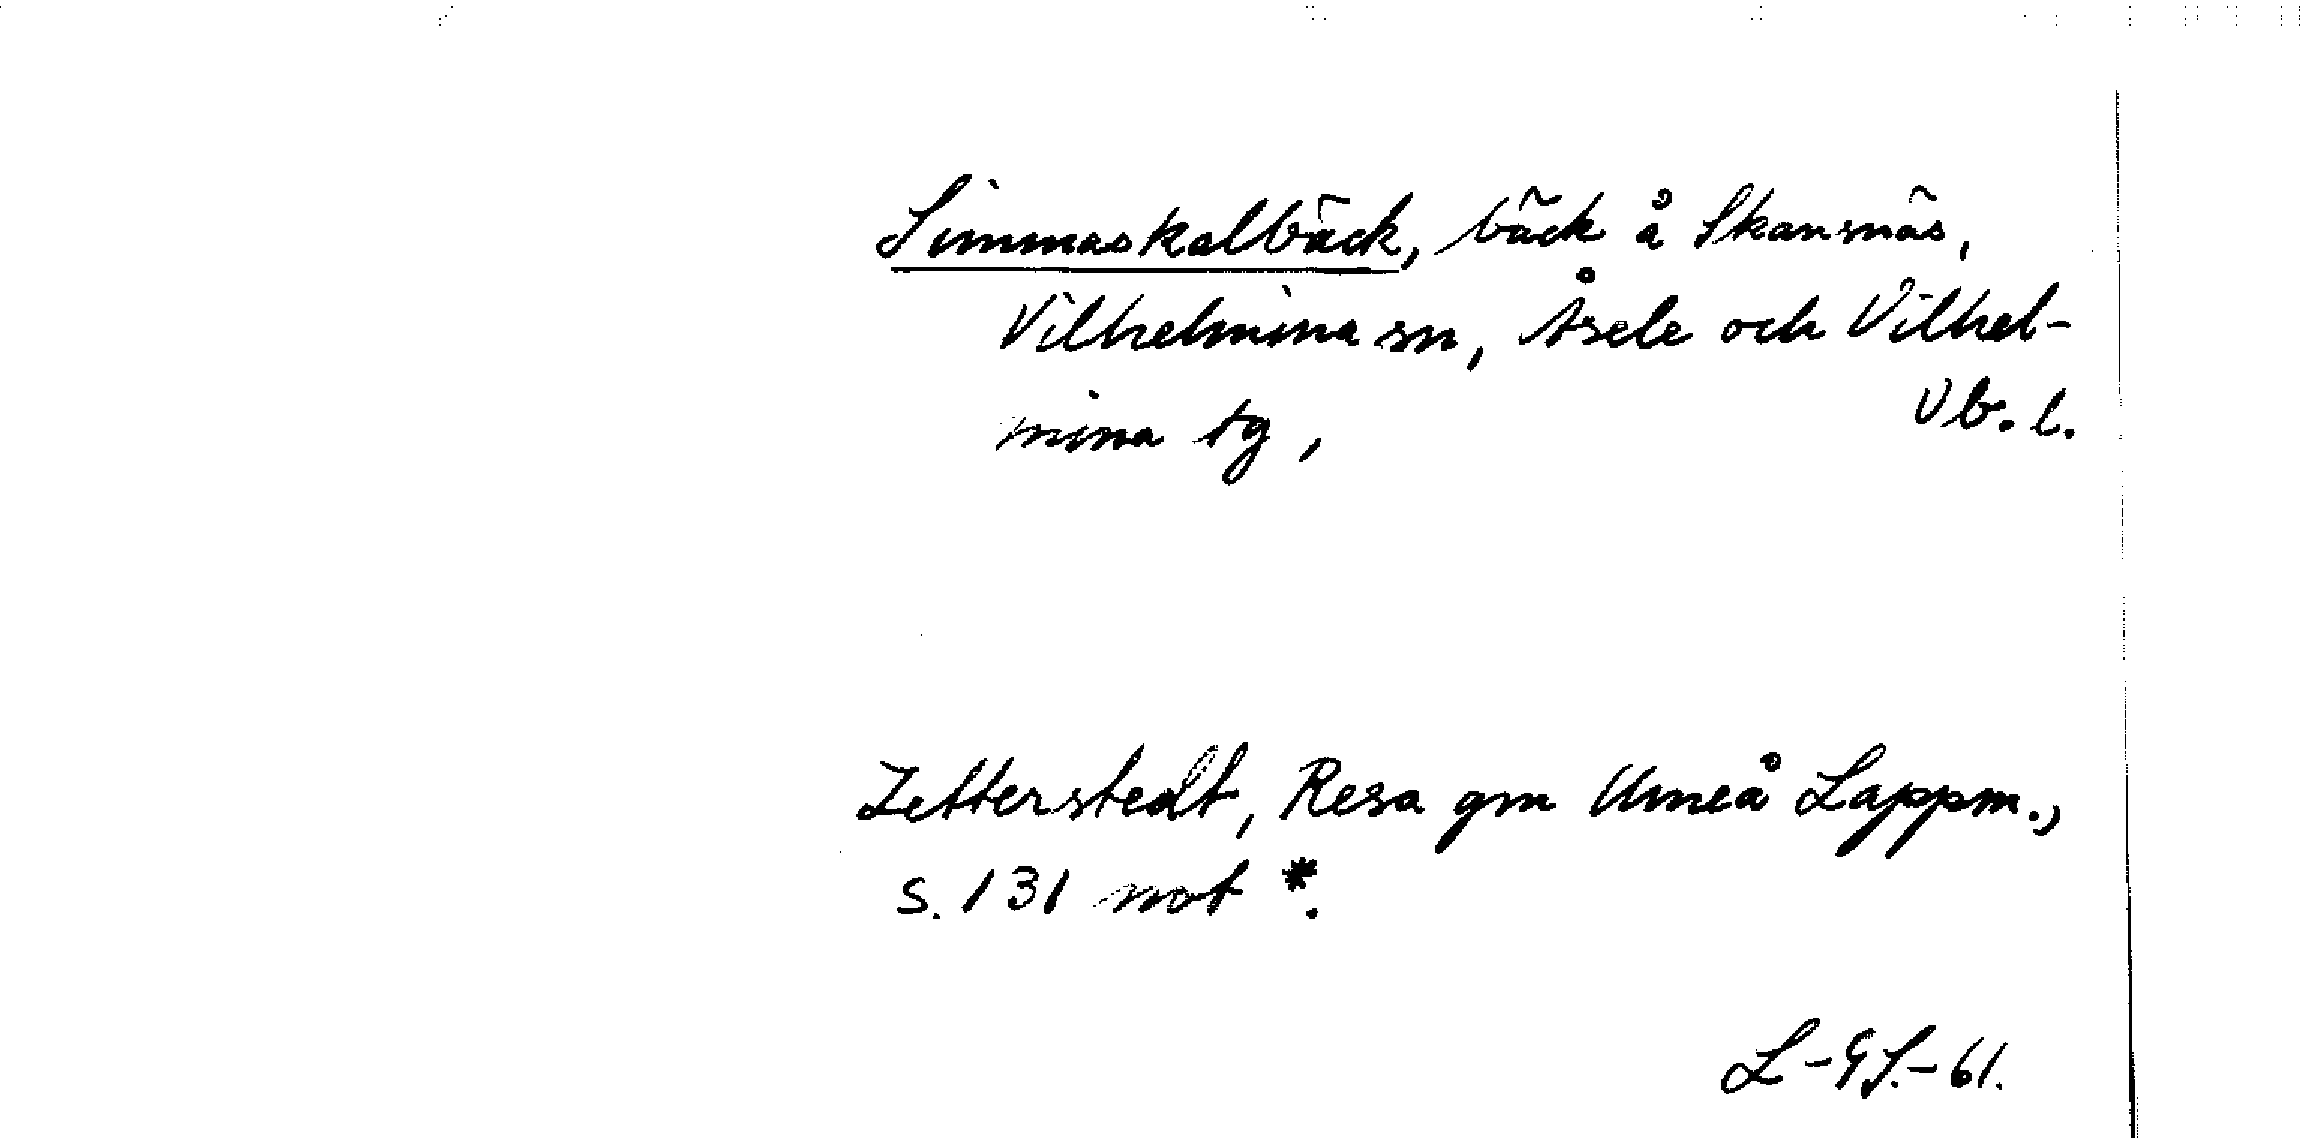 Simmaskalbäck, bäck å Skansnäs,
Vilhelmina sn, Åsele och Vilhel-
mina tg, Vb. l.
Zetterstedt, Resa gm Umeå Lappm.,
s. 131 not *.
L-GS.-61.